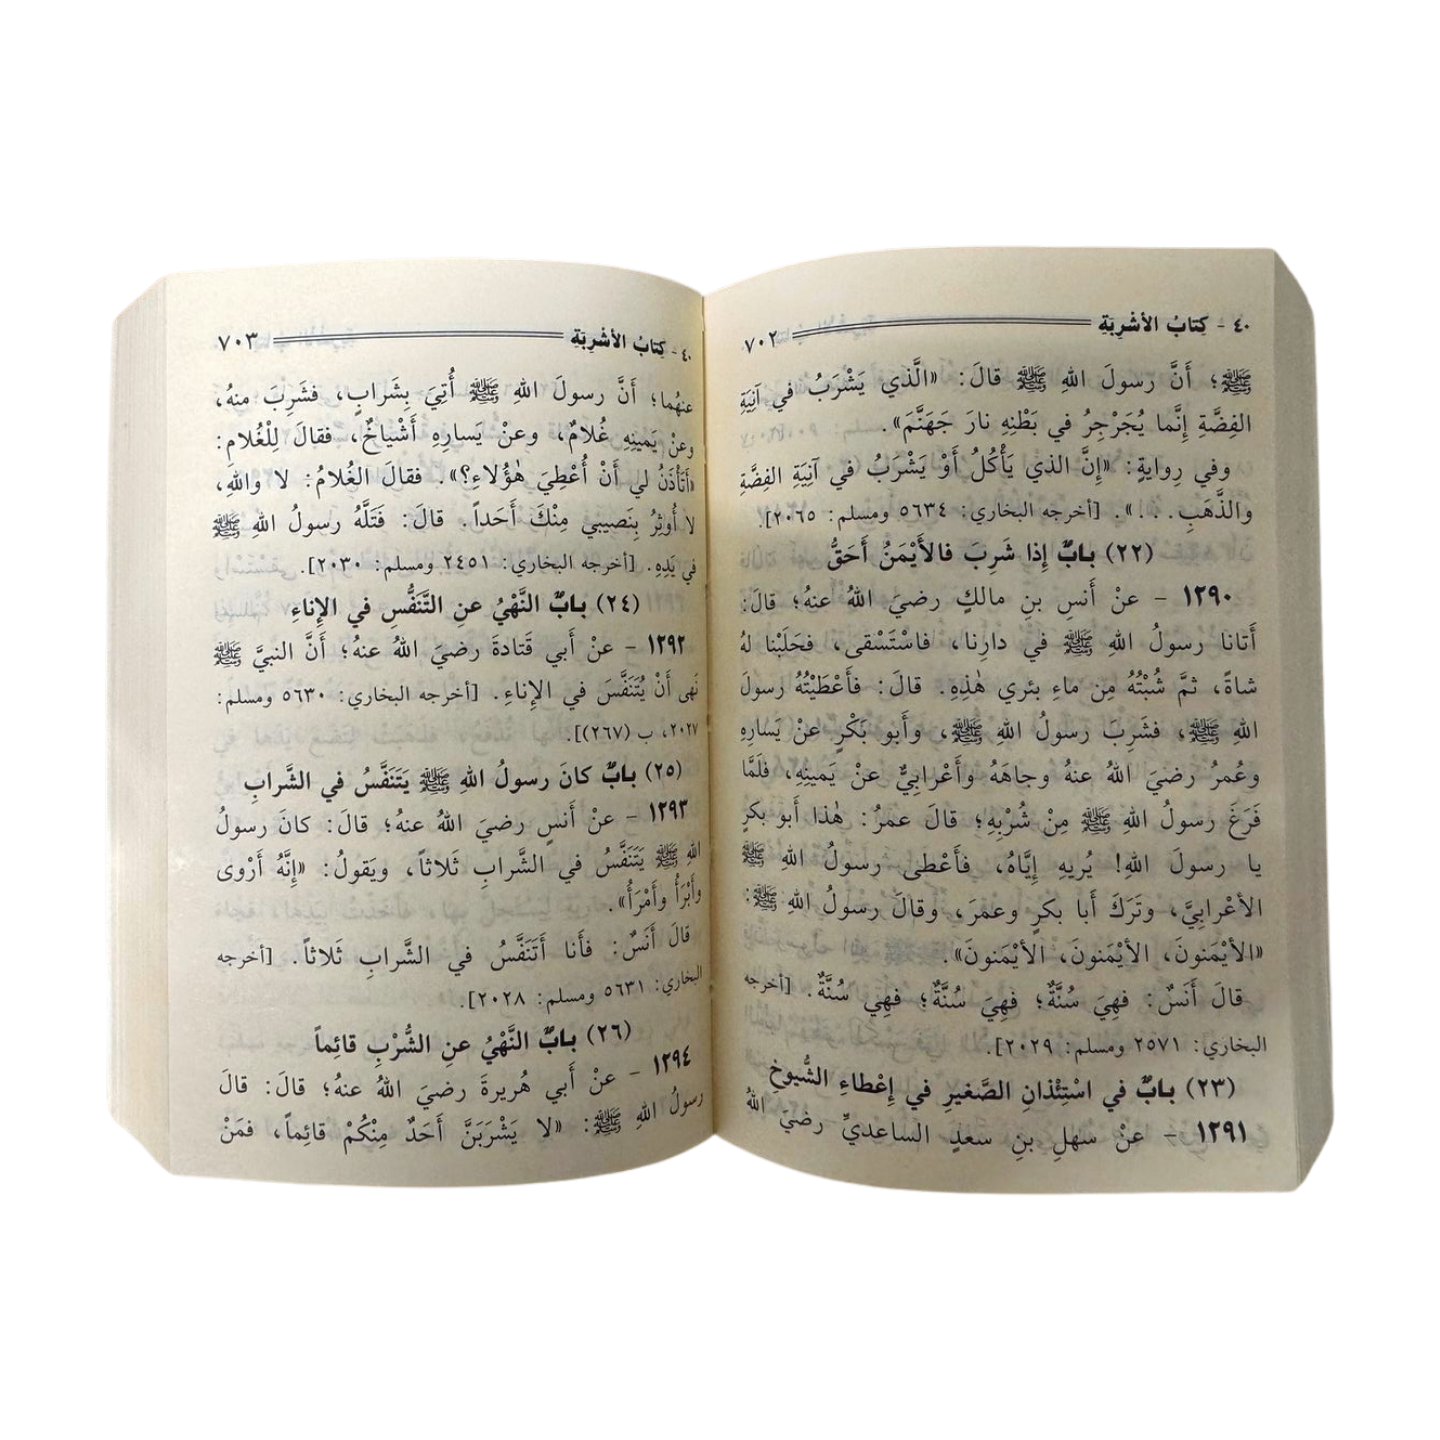 ٤٠ - كِتابُ الأشْرِبَةِ ٧٠٢
ﷺ؛ أَنَّ رسولَ اللهِ ﷺ قالَ: «الَّذي يَشْرَبُ في آنِيَةِ
الفِضَّةِ إِنَّما يُجَرْجِرُ في بَطْنِهِ نارَ جَهَنَّمَ».
وفي رِوايةٍ: «إِنَّ الذي يَأْكُلُ أَوْ يَشْرَبُ في آنِيَةِ الفِضَّةِ
والذَّهَبِ...». [أخرجه البخاري: ٥٦٣٤ ومسلم: ٢٠٦٥].
(٢٢) بابٌ إِذا شَرِبَ فالأَيْمَنُ أَحَقُّ
١٢٩٠ - عنْ أَنسِ بنِ مالكٍ رضيَ اللهُ عنهُ؛ قالَ:
أَتانا رسولُ اللهِ ﷺ في دارِنا، فاسْتَسْقى، فحَلَبْنا لهُ
شاةً، ثمَّ شُبْتُهُ مِن ماءِ بئري هٰذِهِ. قالَ: فأَعْطَيْتُهُ رسولَ
اللهِ ﷺ، فشَرِبَ رسولُ اللهِ ﷺ، وأَبو بَكْرٍ عنْ يَسارِهِ
وعُمرُ رضيَ اللهُ عنهُ وجاهَهُ وأَعْرابِيٌّ عنْ يَمينِهِ، فلَمَّا
فَرَغَ رسولُ اللهِ ﷺ مِنْ شُرْبِهِ؛ قالَ عمرُ: هٰذا أَبو بكرٍ
يا رسولَ اللهِ! يُريهِ إِيَّاهُ، فأَعْطى رسولُ اللهِ ﷺ
الأعْرابِيَّ، وتَرَكَ أَبا بكرٍ وعمرَ، وقالَ رسولُ اللهِ ﷺ:
«الأيْمَنونَ، الأيْمَنونَ، الأيْمَنونَ».
قالَ أَنَسٌ: فهِيَ سُنَّةٌ؛ فهِيَ سُنَّةٌ؛ فهِي سُنَّةٌ. [أخرجه
البخاري: ٢٥٧١ ومسلم: ٢٠٢٩].
(٢٣) بابٌ في اسْتِئْذانِ الصَّغيرِ في إِعْطاءِ الشُّيوخِ
١٢٩١ - عنْ سهلِ بنِ سعدٍ الساعديِّ رضيَ اللهُ
٤٠ - كِتابُ الأشْرِبَةِ ٧٠٣
عنهُما؛ أَنَّ رسولَ اللهِ ﷺ أُتِيَ بِشَرابٍ، فشَرِبَ منهُ،
وعنْ يَمينِهِ غُلامٌ، وعنْ يَسارِهِ أَشْياخٌ، فقالَ لِلْغُلامِ:
«أَتَأْذَنُ لي أَنْ أُعْطِيَ هٰؤُلاءِ؟». فقالَ الغُلامُ: لا واللهِ،
لا أُوثِرُ بِنَصيبي مِنْكَ أَحَداً. قالَ: فَتَلَّهُ رسولُ اللهِ ﷺ
في يَدِهِ. [أخرجه البخاري: ٢٤٥١ ومسلم: ٢٠٣٠].
(٢٤) بابٌ النَّهْيُ عنِ التَّنَفُّسِ في الإِناءِ
١٢٩٢ - عنْ أَبي قَتادةَ رضيَ اللهُ عنهُ؛ أَنَّ النبيَّ ﷺ
نَهى أَنْ يُتَنَفَّسَ في الإِناءِ. [أخرجه البخاري: ٥٦٣٠ ومسلم:
٢٠٢٧، ب (٢٦٧)].
(٢٥) بابٌ كانَ رسولُ اللهِ ﷺ يَتَنَفَّسُ في الشَّرابِ
١٢٩٣ - عنْ أَنسٍ رضيَ اللهُ عنهُ؛ قالَ: كانَ رسولُ
اللهِ ﷺ يَتَنَفَّسُ في الشَّرابِ ثَلاثاً، ويَقولُ: «إِنَّهُ أَرْوى
وأَبْرَأُ وأَمْرَأُ».
قالَ أَنَسٌ: فأَنا أَتَنَفَّسُ في الشَّرابِ ثَلاثاً. [أخرجه
البخاري: ٥٦٣١ ومسلم: ٢٠٢٨].
(٢٦) بابٌ النَّهْيُ عنِ الشُّرْبِ قائِماً
١٢٩٤ - عنْ أَبي هُريرةَ رضيَ اللهُ عنهُ؛ قالَ: قالَ
رسولُ اللهِ ﷺ: «لا يَشْرَبَنَّ أَحَدٌ مِنْكُمْ قائِماً، فمَنْ